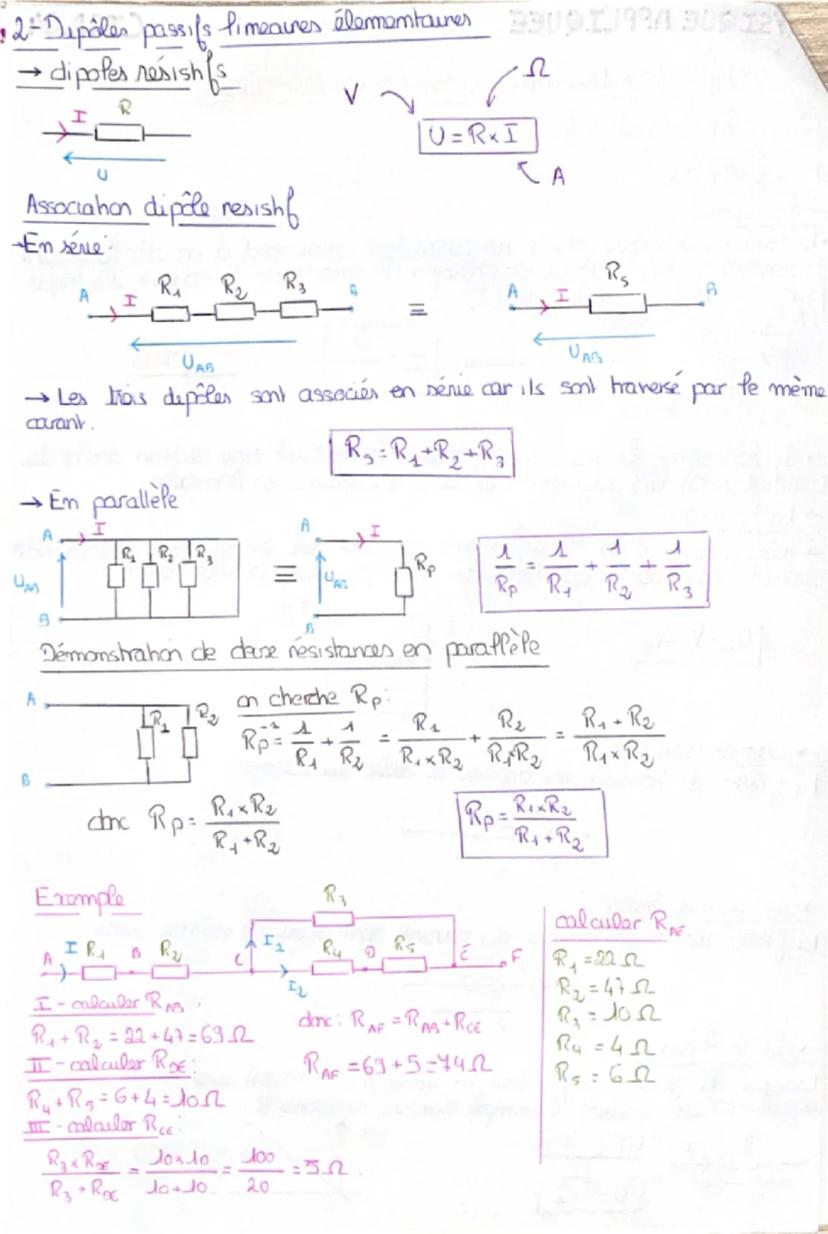 2° Dipôles passifs lineaires élementaires
→ dipoles résistifs
I R
U
V Ω
U = R × I
A
Association dipôle resistif
→ En série
A I R1 R2 R3 B
UAB
=
A I RS B
UAB
→ Les trois dipôles sont associés en série car ils sont traversé par le même
curant.
RS = R1 + R2 + R3
→ En parallele
A I R1 R2 R3
UAB
B
≡
A I RP
UAB
B
1/RP = 1/R1 + 1/R2 + 1/R3
Démonstration de deux résistances en parallèle
A R1 R2
B
on cherche RP :
RP⁻¹ = 1/R1 + 1/R2 = R1/(R1 × R2) + R2/(R1 × R2) = (R1 + R2)/(R1 × R2)
donc RP = (R1 × R2)/(R1 + R2)
RP = (R1 × R2)/(R1 + R2)
Exemple
R3
A I R1 B R2 C I1 R4 D R5 E F
I2
I - calculer RAB :
R1 + R2 = 22 + 47 = 69 Ω
II - calculer RDE :
R4 + R5 = 6 + 4 = 10 Ω
III - calculer RCE :
(R3 × RDE)/(R3 + RDE) = (10×10)/(10+10) = 100/20 = 5 Ω
donc : RAF = RAB + RCE
RAF = 69 + 5 = 74 Ω
calculer RAF
R1 = 22 Ω
R2 = 47 Ω
R3 = 10 Ω
R4 = 4 Ω
R5 = 6 Ω